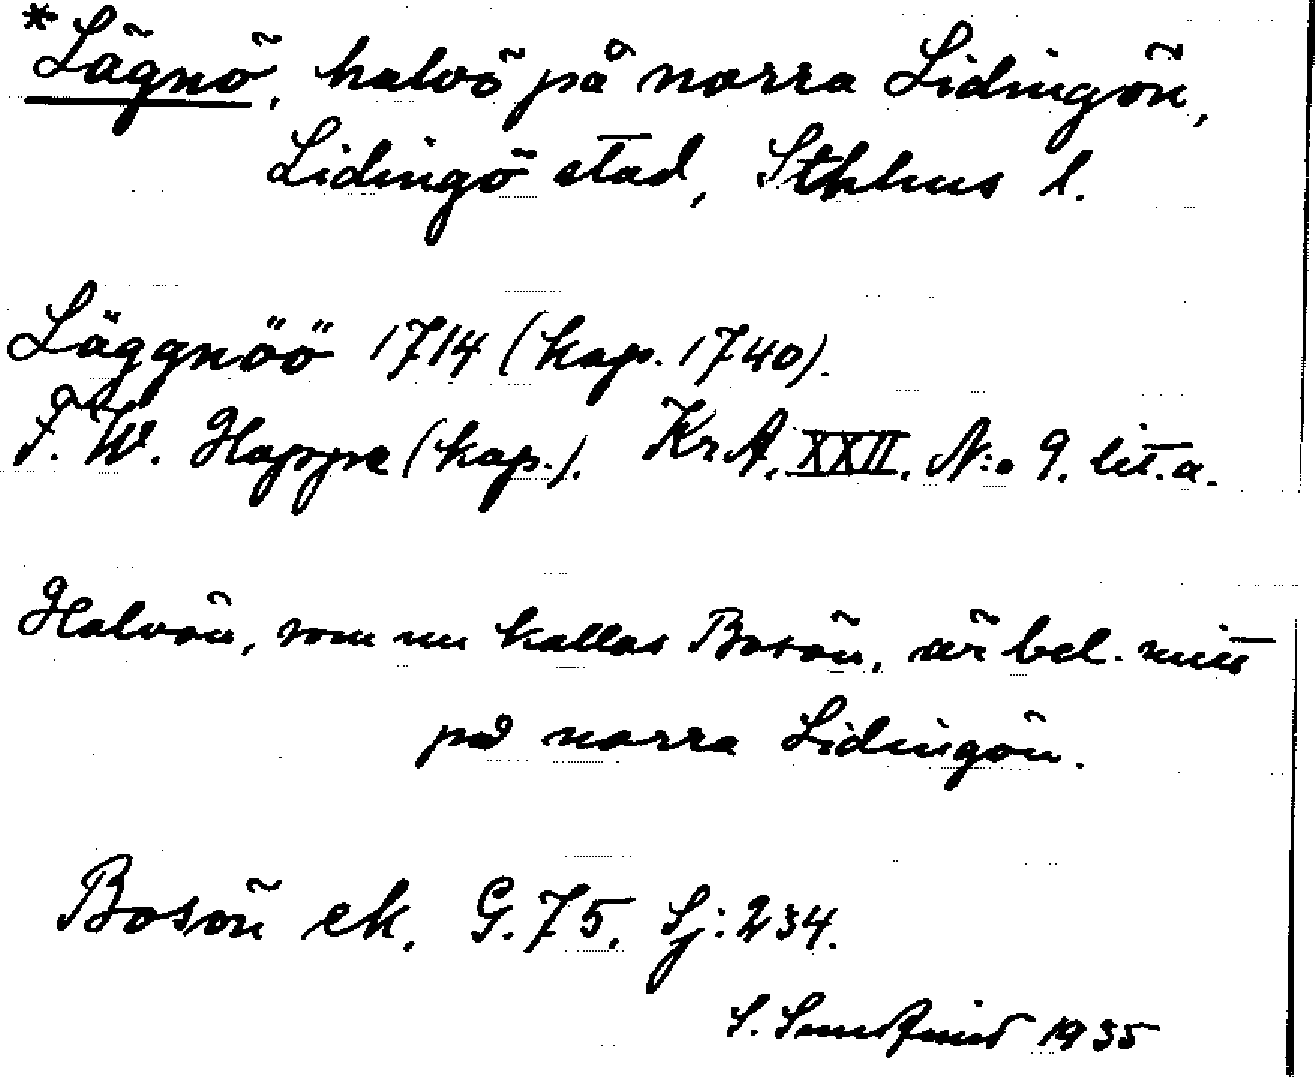 *Lägnö, halvö på norra Lidingön,
Lidingö stad, Sthlms l.
Läggnöö 1714 (kop. 1740).
F. W. Happe (kop.). KrA. XXII. N:o 9. lit. a.
Halvön, som nu kallas Bosön, är bel. mitt
på norra Lidingön.
Bosön ek. G. 75. Sj: 234.
S. 1935